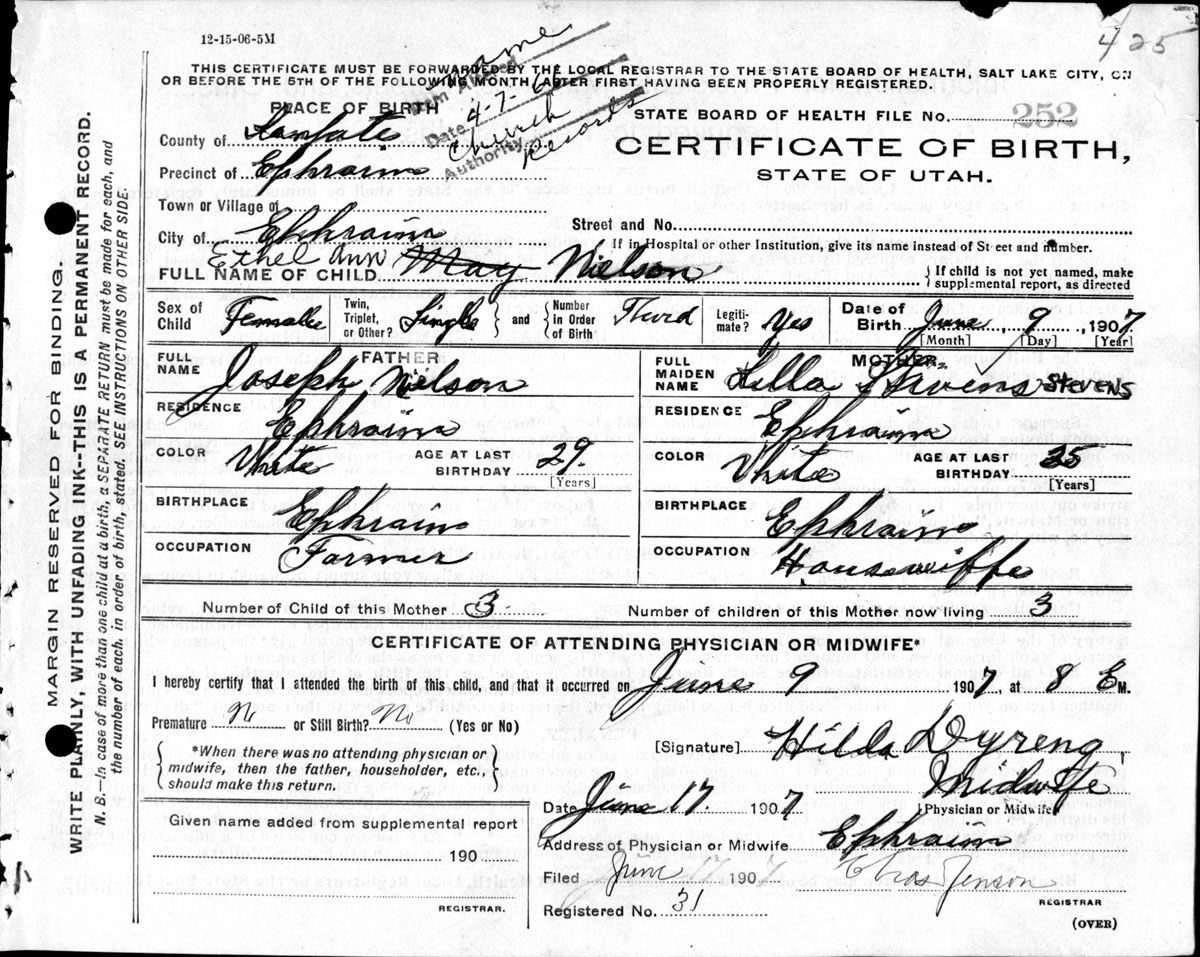 425
12-15-06-5M
THIS CERTIFICATE MUST BE FORWARDED BY THE LOCAL REGISTRAR TO THE STATE BOARD OF HEALTH, SALT LAKE CITY, ON
OR BEFORE THE 5TH OF THE FOLLOWING MONTH AFTER FIRST HAVING BEEN PROPERLY REGISTERED.
name
Item Altered
Date 4-7-
Authority Church Records
PLACE OF BIRTH
STATE BOARD OF HEALTH FILE No. 252
County of Sanpete
CERTIFICATE OF BIRTH,
Precinct of Ephraim
STATE OF UTAH.
Town or Village of
Street and No.
City of Ephraim
If in Hospital or other Institution, give its name instead of Street and number.
Ethel Ann
FULL NAME OF CHILD May Nielson
If child is not yet named, make supplemental report, as directed
Sex of Child Femalle
Twin, Triplet, or Other? Single
and Number in Order of Birth Third
Legiti-mate? Yes
Date of Birth June 9, 1907
[Month] [Day] [Year]
FATHER
FULL NAME Joseph Nielson
MOTHER
FULL MAIDEN NAME Hilla Stivens STEVENS
RESIDENCE Ephraim
RESIDENCE Ephraim
COLOR White AGE AT LAST BIRTHDAY 29. [Years]
COLOR White AGE AT LAST BIRTHDAY 25 [Years]
BIRTHPLACE Ephraim
BIRTHPLACE Ephraim
OCCUPATION Farmer
OCCUPATION Housewiffe
Number of Child of this Mother 3
Number of children of this Mother now living 3
CERTIFICATE OF ATTENDING PHYSICIAN OR MIDWIFE*
I hereby certify that I attended the birth of this child, and that it occurred on June 9 1907, at 8 E M.
Premature No or Still Birth? No (Yes or No)
*When there was no attending physician or midwife, then the father, householder, etc., should make this return.
[Signature] Hilda Dyreng,
Midwife
Date June 17. 1907
Physician or Midwife
Given name added from supplemental report
190
REGISTRAR.
Address of Physician or Midwife Ephraim
Filed June 17 1907 Chas Jenson
REGISTRAR
Registered No. 31
(OVER)
MARGIN RESERVED FOR BINDING.
WRITE PLAINLY, WITH UNFADING INK--THIS IS A PERMANENT RECORD.
N. B.—In case of more than one child at a birth, a SEPARATE RETURN must be made for each, and
the number of each, in order of birth, stated. SEE INSTRUCTIONS ON OTHER SIDE.